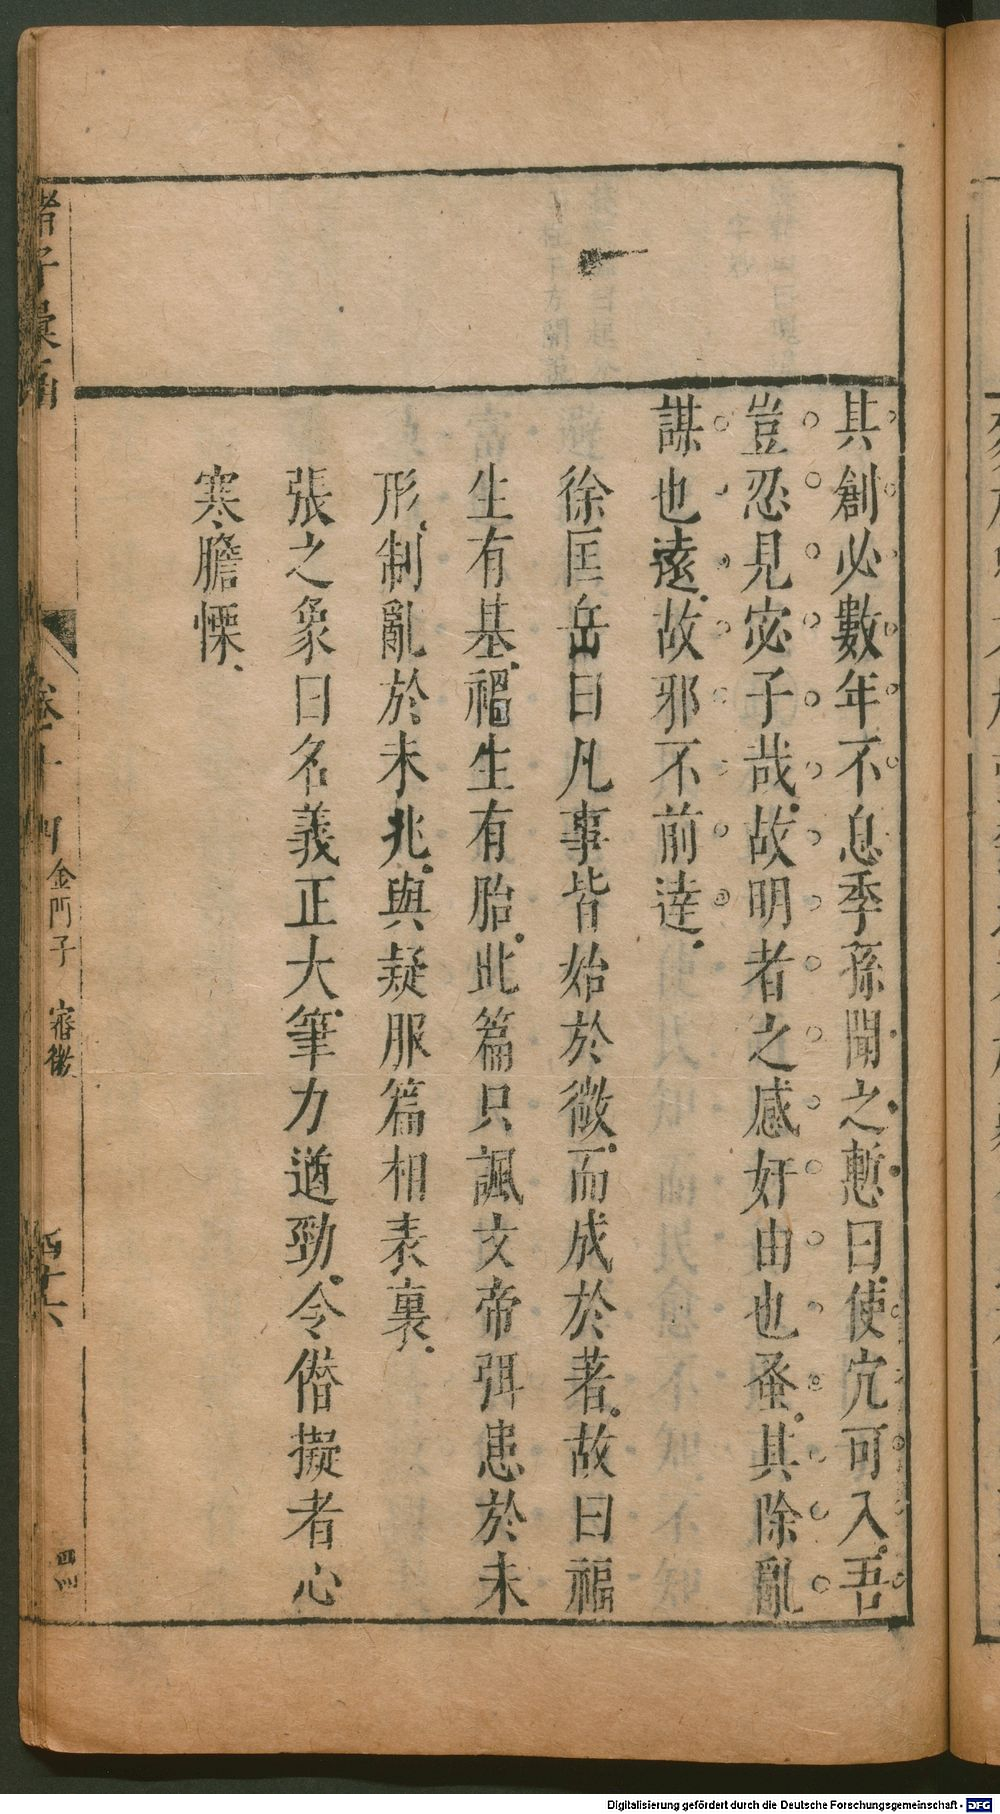 其創必數年不息季孫聞之慙曰使穴可入吾
豈忍見宓子哉故明者之感奸由也蚤其除亂
謀也遠故邪不前達
徐匡岳曰凡事皆始於微而成於著故曰福
生有基禍生有胎此篇只諷文帝弭患於未
形制亂於未兆與疑服篇相表裏
張之象曰名義正大筆力遒勁令僭擬者心
寒膽慄
諸子彙函
金門子 審微
四四
Digitalisierung gefördert durch die Deutsche Forschungsgemeinschaft - DFG